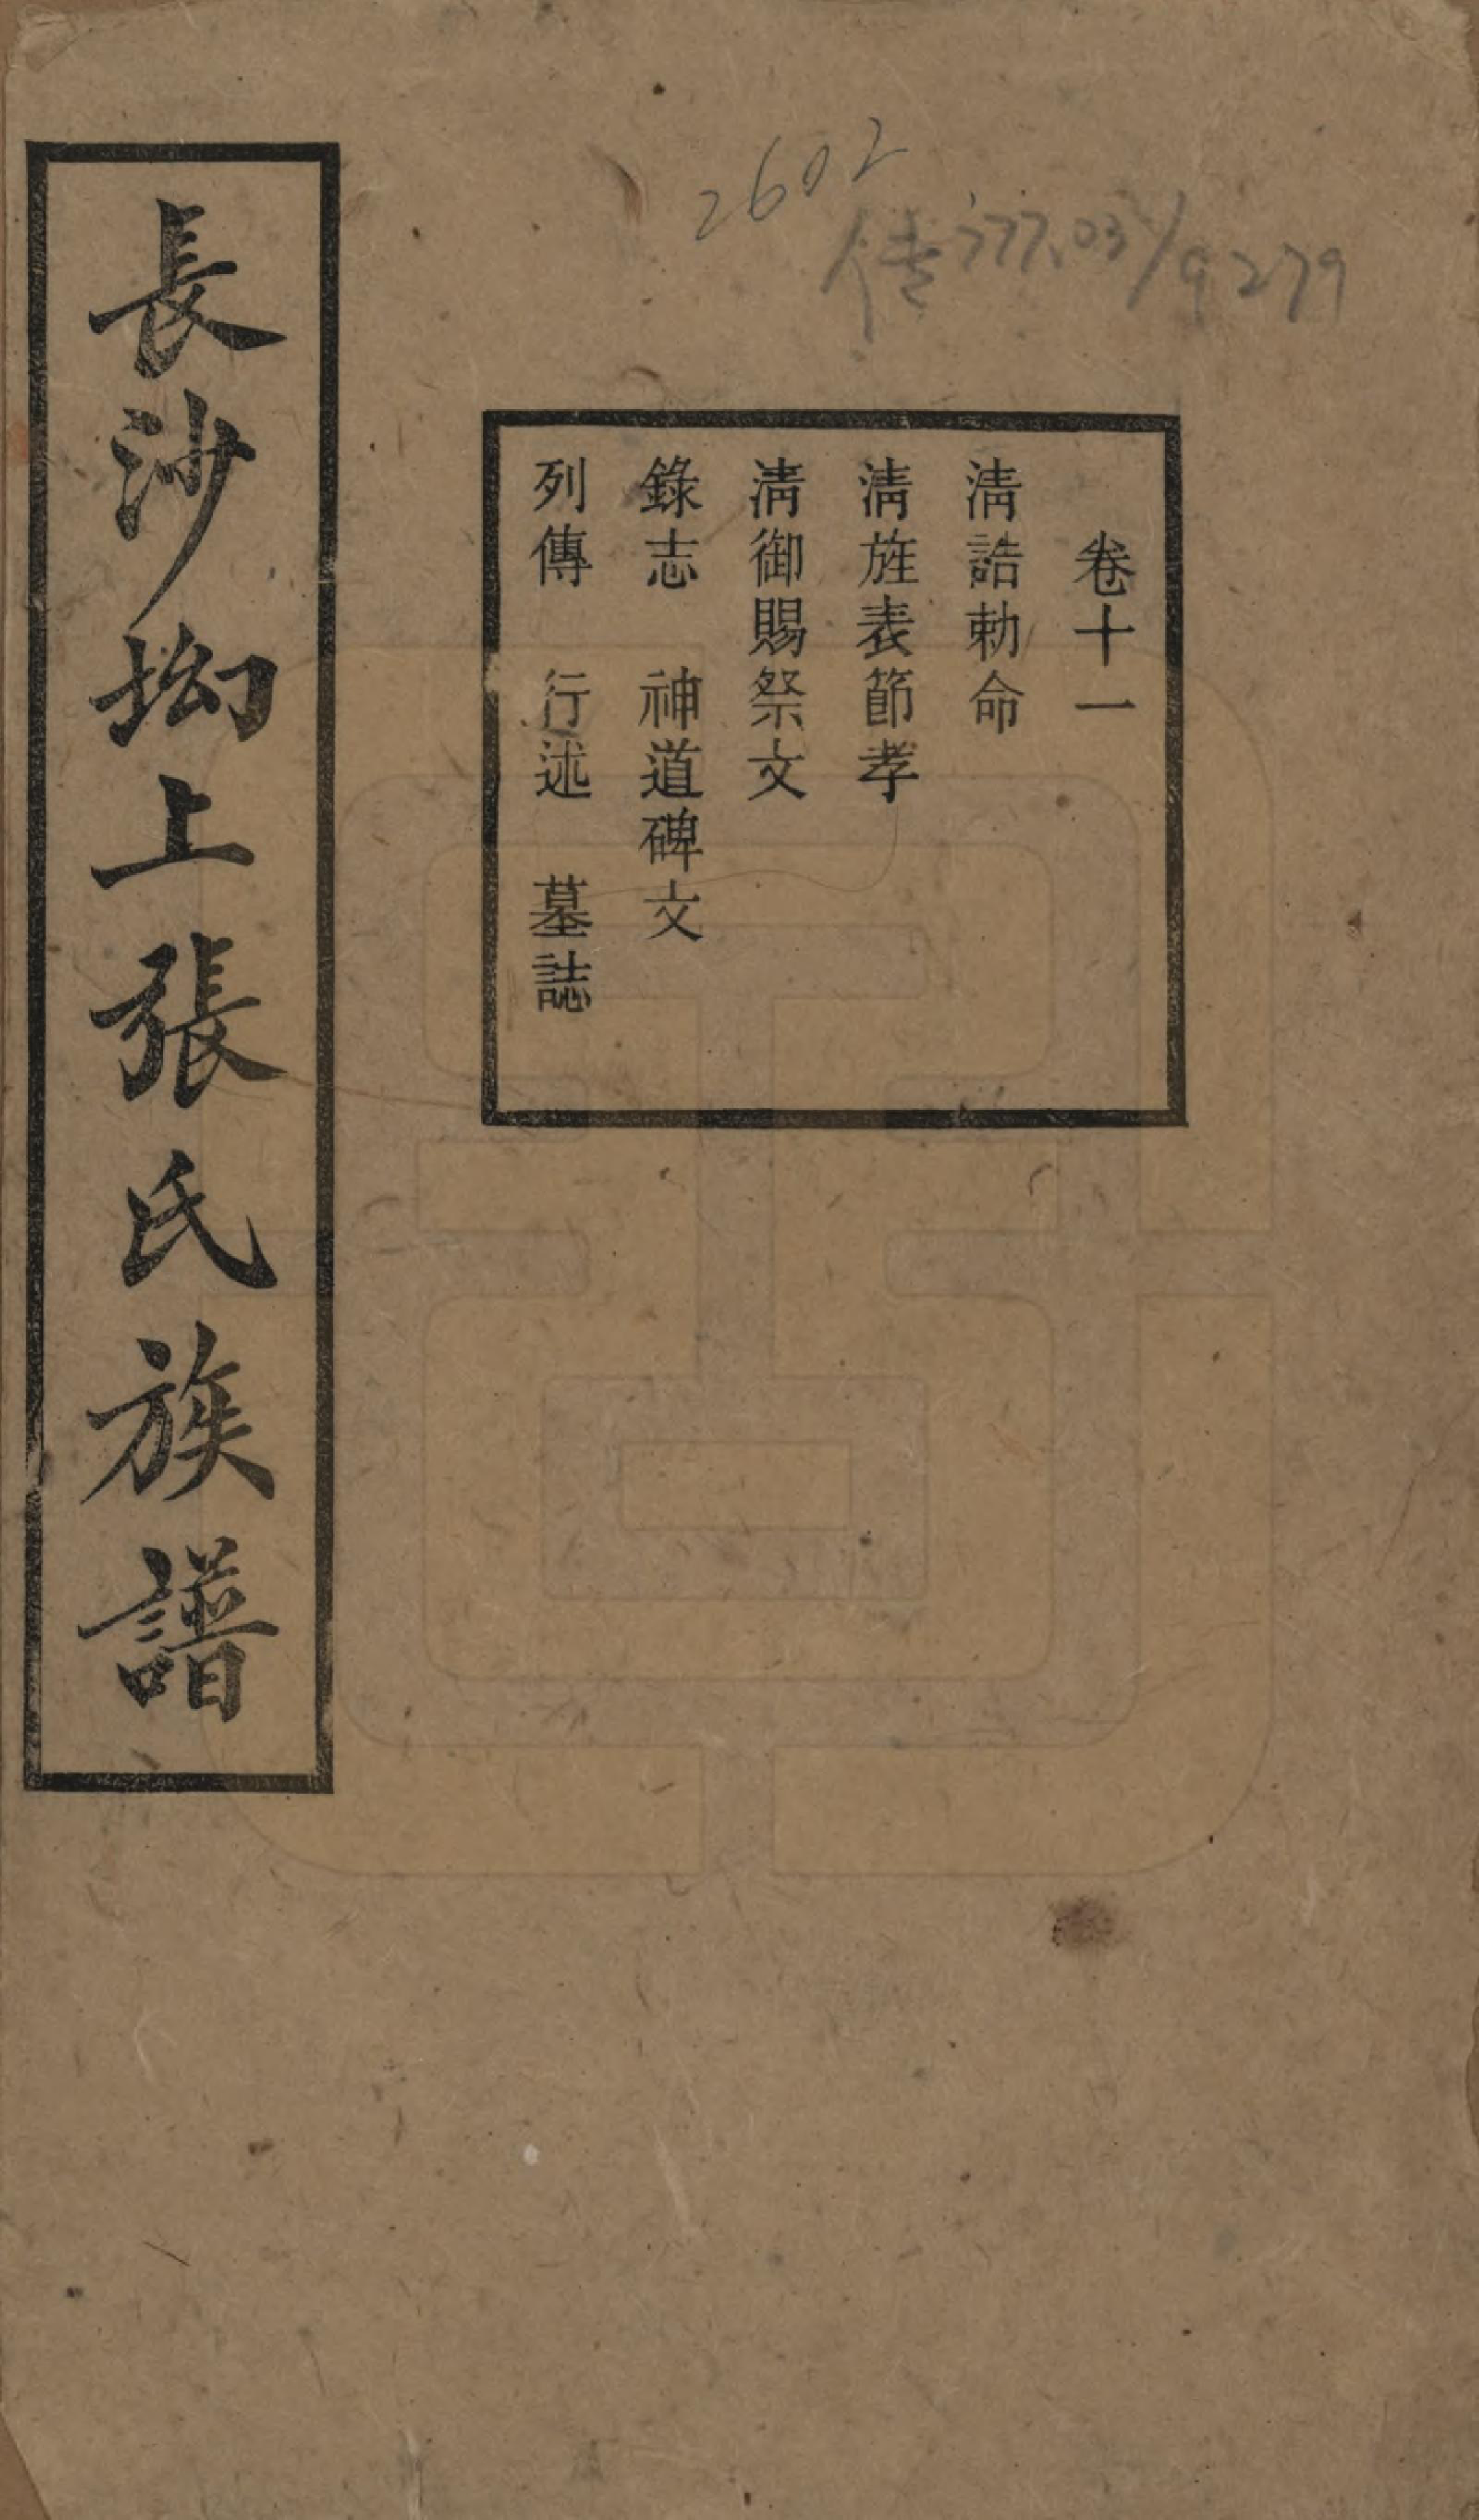 2602
传777.03/9279
卷十一
淸誥勅命
淸旌表節孝
淸御賜祭文
錄志 神道碑文
列傳 行述 墓誌
長沙㘭上張氏族譜